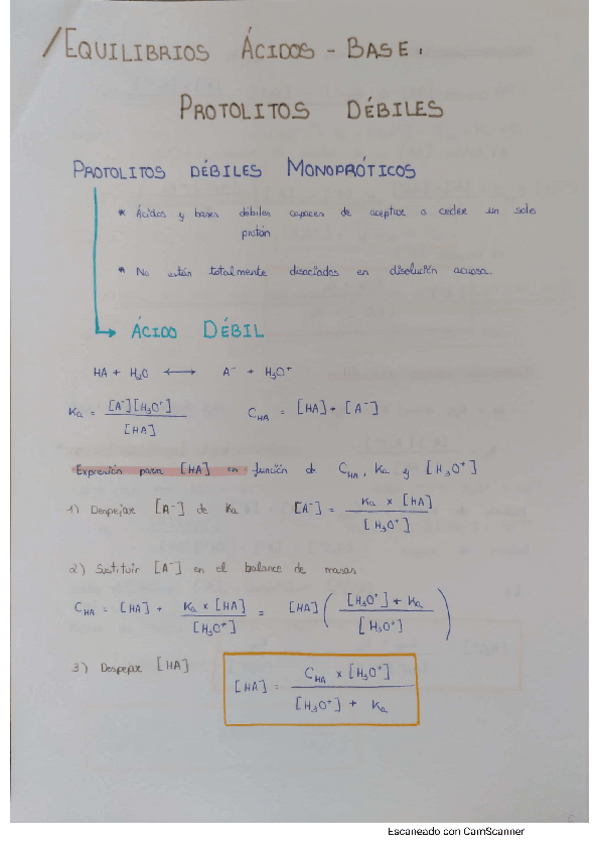 /EQUILIBRIOS ÁCIDOS - BASE:
PROTOLITOS DÉBILES
PROTOLITOS DÉBILES MONOPRÓTICOS
* Ácidos y bases débiles capaces de aceptar o ceder un solo
protón
* No están totalmente disociados en disolución acuosa.
ÁCIDO DÉBIL
HA + H₂O ⟷ A⁻ + H₃O⁺
Ka = [A⁻][H₃O⁺] / [HA]    C_HA = [HA] + [A⁻]
Expresión para [HA] en función de C_HA, Ka y [H₃O⁺]
1) Despejar [A⁻] de Ka    [A⁻] = Ka x [HA] / [H₃O⁺]
2) Sustituir [A⁻] en el balance de masas
C_HA = [HA] + Ka x [HA] / [H₃O⁺] = [HA] ( [H₃O⁺] + Ka / [H₃O⁺] )
3) Despejar [HA]    [HA] = C_HA x [H₃O⁺] / [H₃O⁺] + Ka
Escaneado con CamScanner